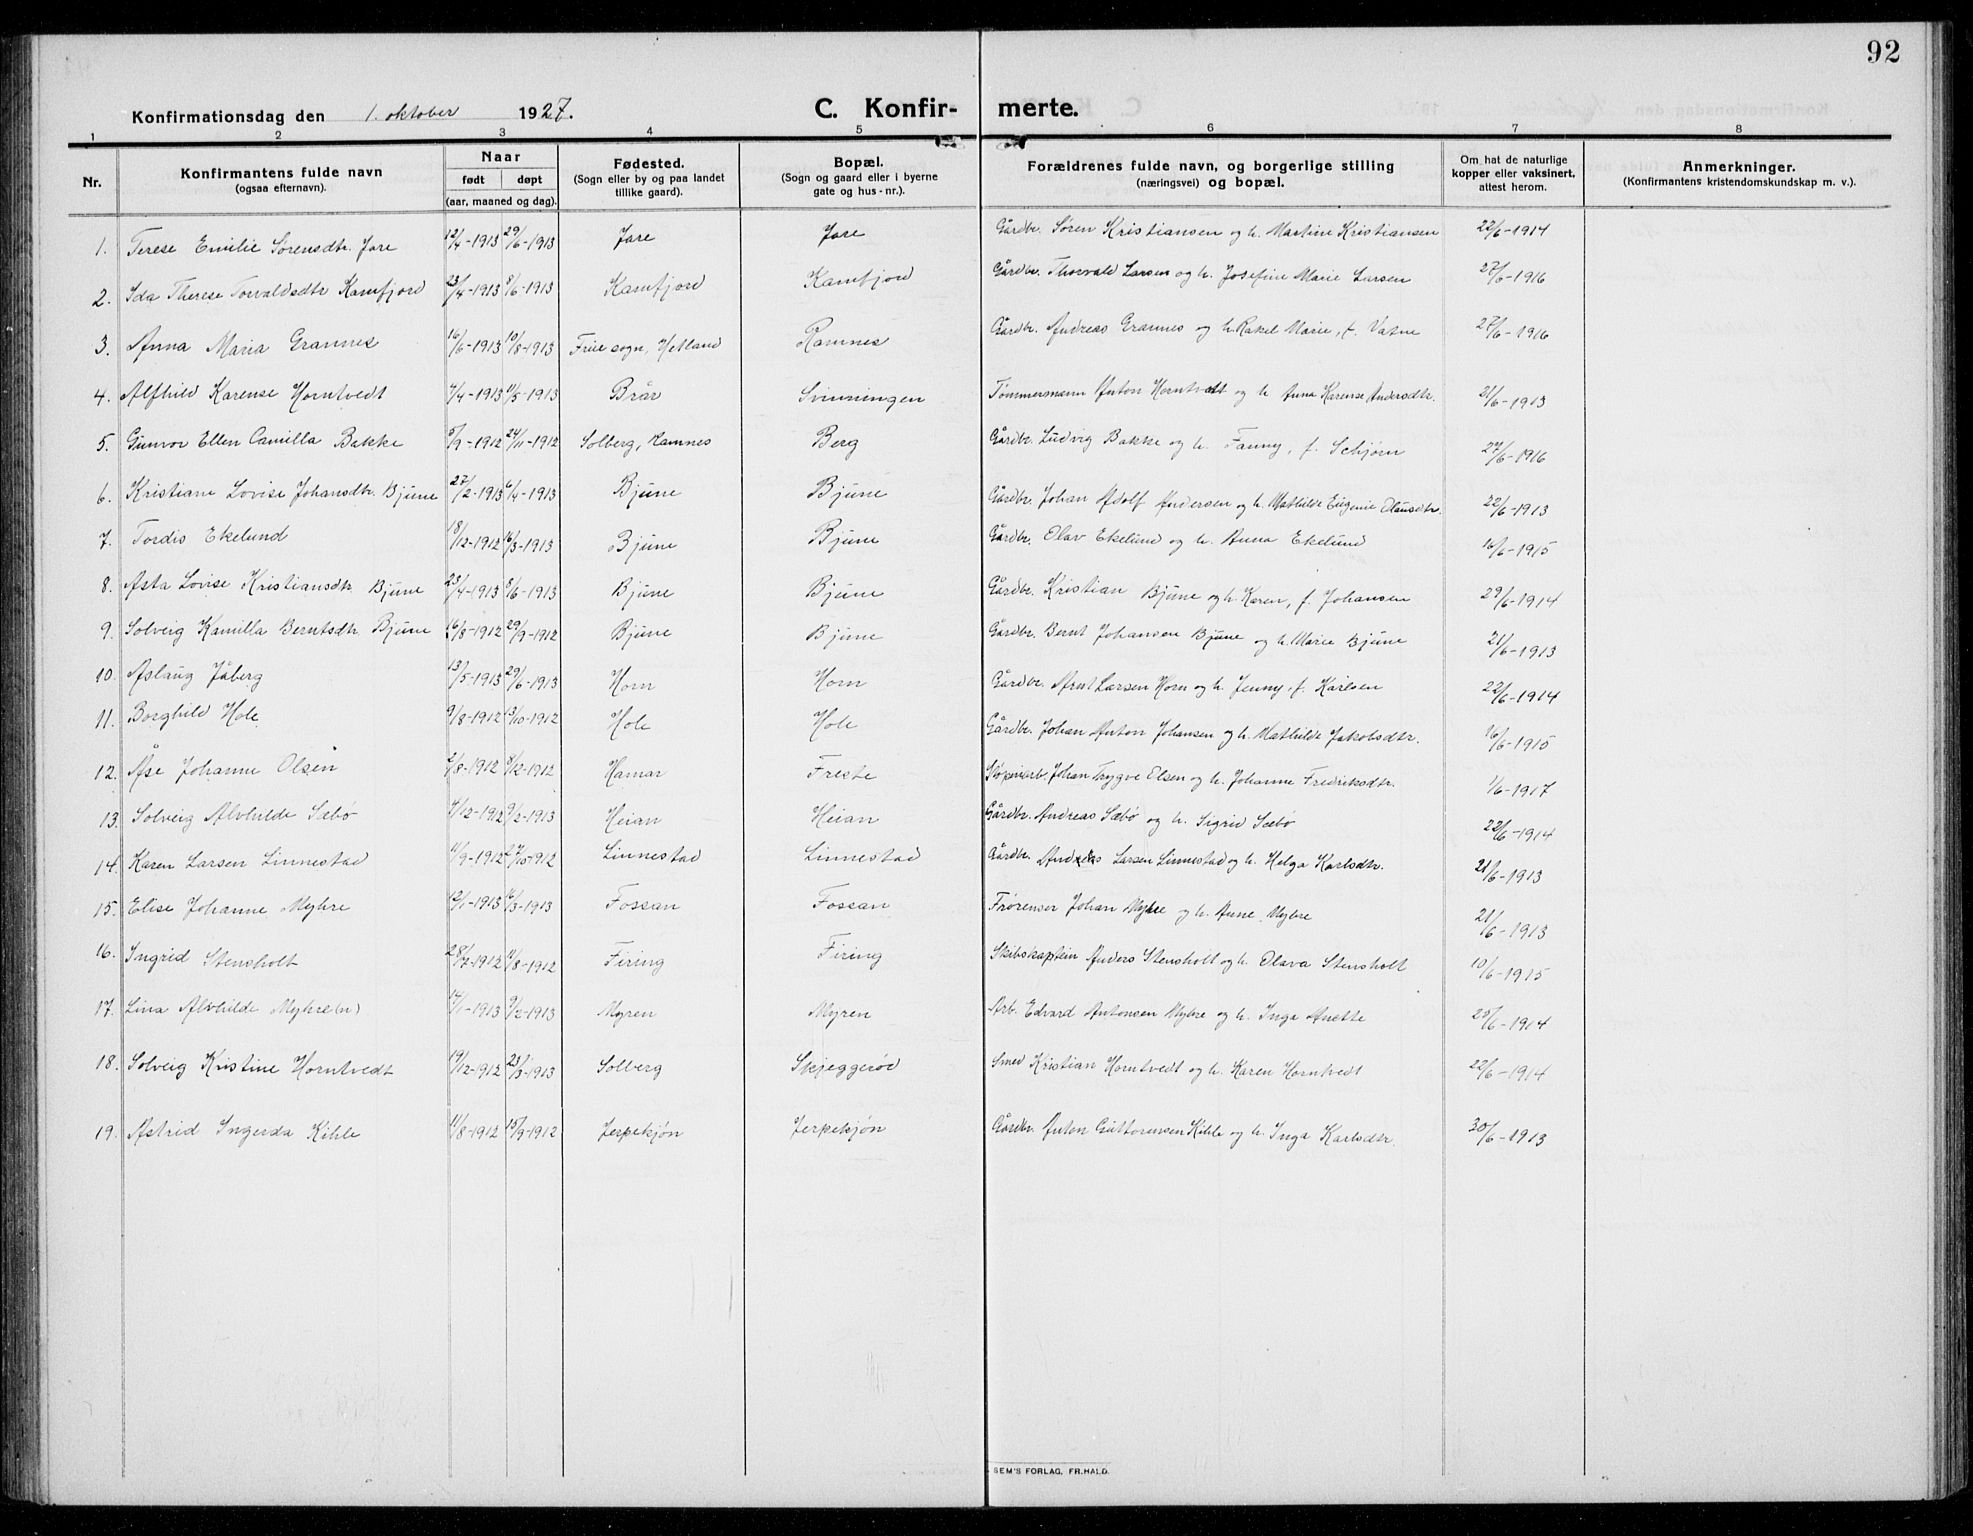 92
Konfirmationsdag den 1. oktober 1927. C. Konfir- merte.
1 2 3 4 5 6 7 8
Nr. Konfirmantens fulde navn (ogsaa efternavn). Naar født døpt (aar, maaned og dag). Fødested. (Sogn eller by og paa landet tillike gaard). Bopæl. (Sogn og gaard eller i byerne gate og hus-nr.). Forældrenes fulde navn, og borgerlige stilling (næringsvei) og bopæl. Om hat de naturlige kopper eller vaksinert, attest herom. Anmerkninger. (Konfirmantens kristendomskundskap m. v.).
1. Terese Emilie Sørensdtr. Jare 12/4-1913 29/6-1913 Jare Jare Gårdbr. Søren Kristiansen og h. Martine Kristiansen 22/6-1914
2. Ida Therese Torvaldsdtr Kamfjord 23/4-1913 8/6-1913 Kamfjord Kamfjord Gårdbr. Thorvald Larsen og h. Josefine Marie Larsen 27/6-1916
3. Anna Maria Grannes 16/6-1913 10/8-1913 Frue sogn, Hetland Ramnes Gårdbr. Andreas Grannes og h. Rakel Marie, f. Vatne 27/6-1916
4. Alfhild Karense Horntvedt 7/4-1913 11/5-1913 Brår Svinningen Tømmermann Anton Horntvedt og h. Anna Karense Andersdtr. 21/6-1913
5. Gunvor Ellen Camilla Bakke 5/9-1912 24/11-1912 Solberg, Ramnes Berg Gårdbr. Ludvig Bakke og h. Fanny, f. Schjørn 27/6-1916
6. Kristiane Lovise Johansdtr. Bjune 27/2-1913 6/4-1913 Bjune Bjune Gårdbr. Johan Adolf Andersen og h. Mathilde Eugenie Olausdtr. 22/6-1913
7. Tordis Ekelund 18/12-1912 16/3-1913 Bjune Bjune Gårdbr. Olav Ekelund og h. Anna Ekelund 16/6-1915
8. Asta Lovise Kristiansdtr. Bjune 23/4-1913 8/6-1913 Bjune Bjune Gårdbr. Kristian Bjune og h. Karen, f. Johansen 29/6-1914
9. Solveig Kamilla Berntsdtr. Bjune 16/8-1912 29/9-1912 Bjune Bjune Gårdbr. Bernt Johansen Bjune og h. Marie Bjune 21/6-1913
10. Aslaug Jåberg 13/5-1913 29/6-1913 Horn Horn Gårdbr. Arnt Larsen Horn og h. Jenny, f. Karlsen 22/6-1914
11. Borghild Hole 9/8-1912 13/10-1912 Hole Hole Gårdbr. Johan Anton Johansen og h. Mathilde Jakobsdtr. 16/6-1915
12. Åse Johanne Olsen 2/8-1912 8/12-1912 Hamar Freste Johan Trygve Olsen og h. Johanne Fredriksdtr. 1/6-1917
13. Solveig Alvhilde Sæbø 4/12-1912 9/2-1913 Heian Heian Gårdbr. Andreas Sæbø og h. Sigrid Sæbø 22/6-1914
14. Karen Larsen Linnestad 11/9-1912 27/10-1912 Linnestad Linnestad Gårdbr. Andreas Larsen Linnestad og h. Helga Karlsdtr. 21/6-1913
15. Elise Johanne Myhre 12/1-1913 16/3-1913 Fossan Fossan Frørenser Johan Myhre og h. Anne Myhre 21/6-1913
16. Ingrid Stensholt 28/7-1912 11/8-1912 Firing Firing Skibskaptein Anders Stensholt og h. Olava Stensholt 10/6-1915
17. Lina Alvhilde Myhre(n) 14/1-1913 9/2-1913 Myren Myren Arb. Edvard Antonsen Myhre og h. Inga Anette 25/6-1914
18. Solveig Kristine Horntvedt 19/12-1912 23/3-1913 Solberg Skjeggerød Smed Kristian Horntvedt og h. Karen Horntvedt 22/6-1914
19. Astrid Ingerda Kihle 11/8-1912 15/9-1912 Jerpekjøn Jerpekjøn Gårdbr. Anton Guttorensen Kihle og h. Inga Karlsdtr. 30/6-1913
SEM'S FORLAG, FR.HALD.